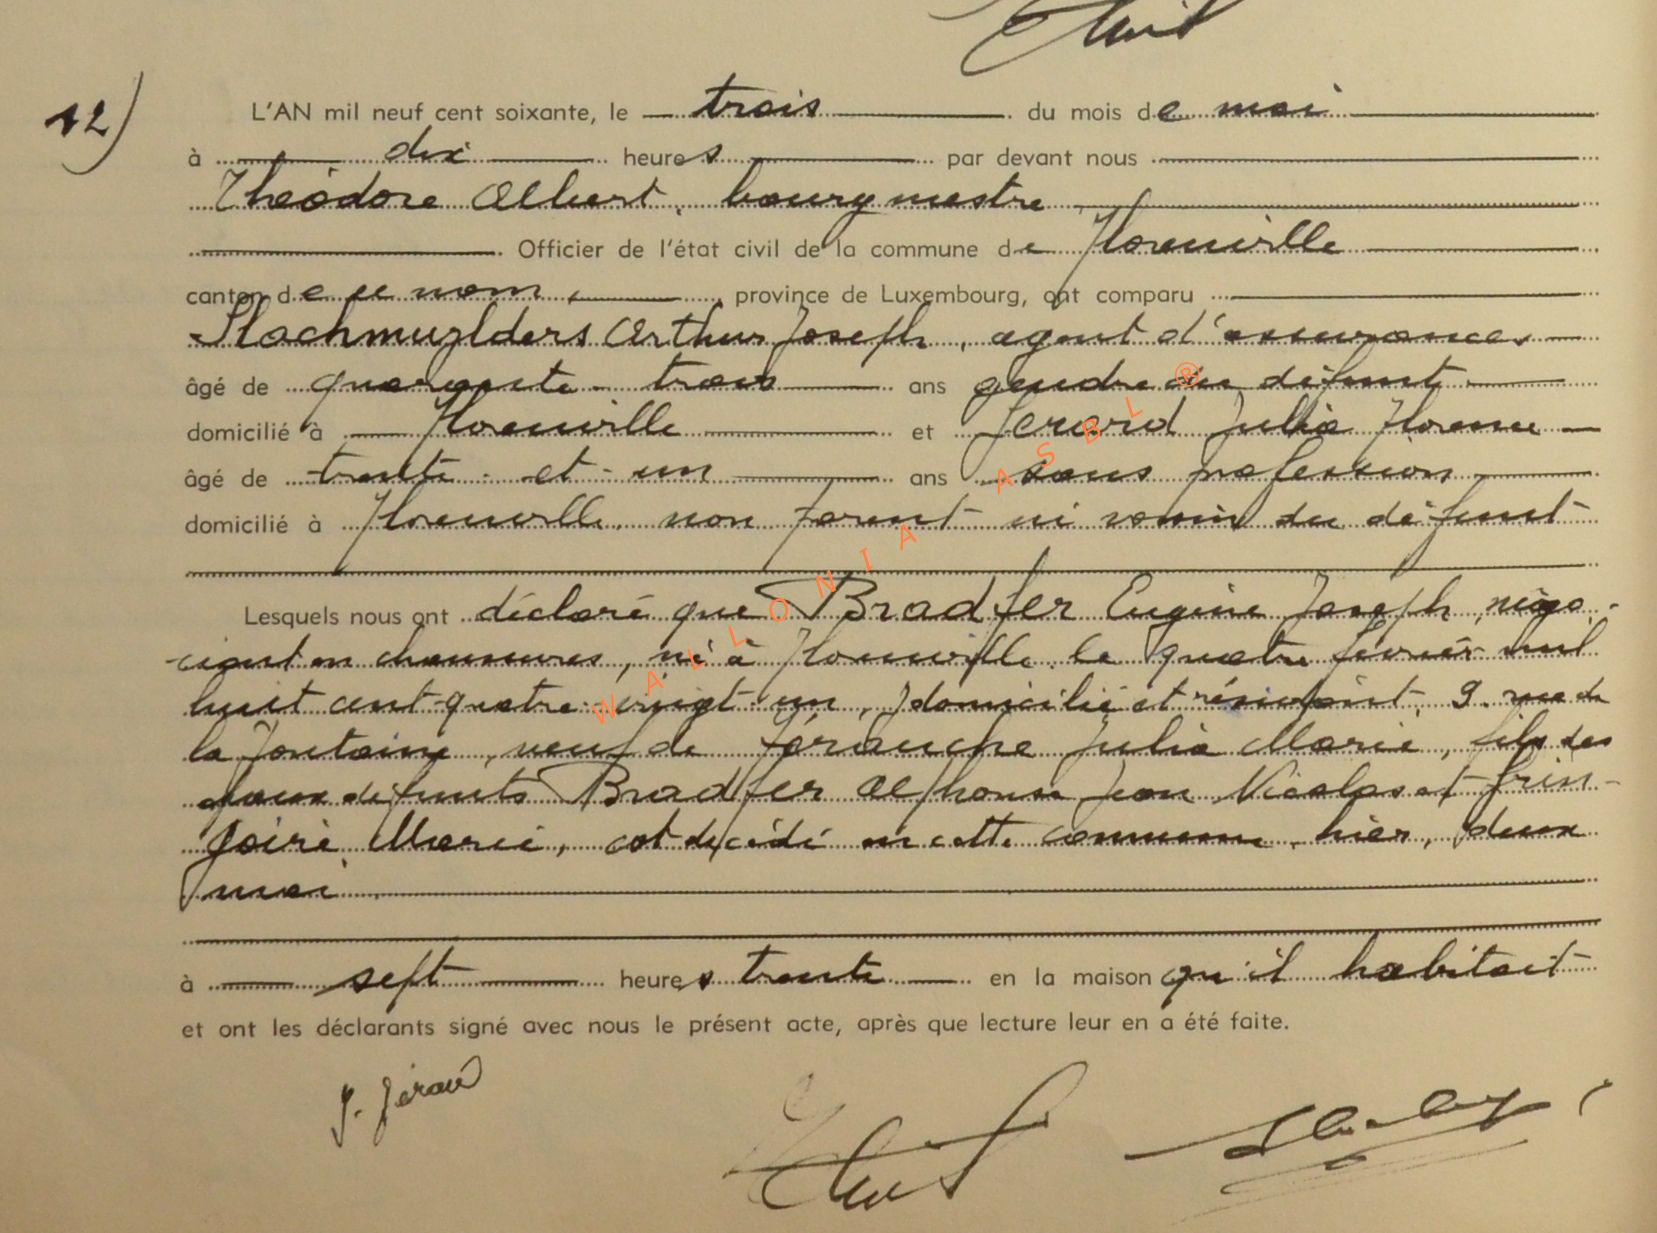 12)
L'AN mil neuf cent soixante, le trois du mois de mai
à dix heures par devant nous
Théodore Albert, bourgmestre
Officier de l'état civil de la commune de Florenville
canton de ce nom, province de Luxembourg, ont comparu
Slachmuylders Arthur Joseph, agent d'assurances
âgé de quarante-trois ans gendre du défunt
domicilié à Florenville et Gerard Julia Florence
âgé de trente-et-un ans sans profession
domicilié à Florenville, non parent ni voisin du défunt
Lesquels nous ont déclaré que Bradfer Eugène Joseph, négo-
ciant en chaussures, né à Florenville le quatre février mil
huit cent quatre-vingt-un, domicilié et résidant, 9, rue de
la Fontaine, veuf de Julia Marie, fils des
époux défunts Bradfer Alphonse Jean Nicolas et Grin-
goire Marie, est décédé en cette commune, hier, deux
mai
à sept heures trente en la maison qu'il habitait
et ont les déclarants signé avec nous le présent acte, après que lecture leur en a été faite.
J. Gérard
WALLONIA ASBL ®